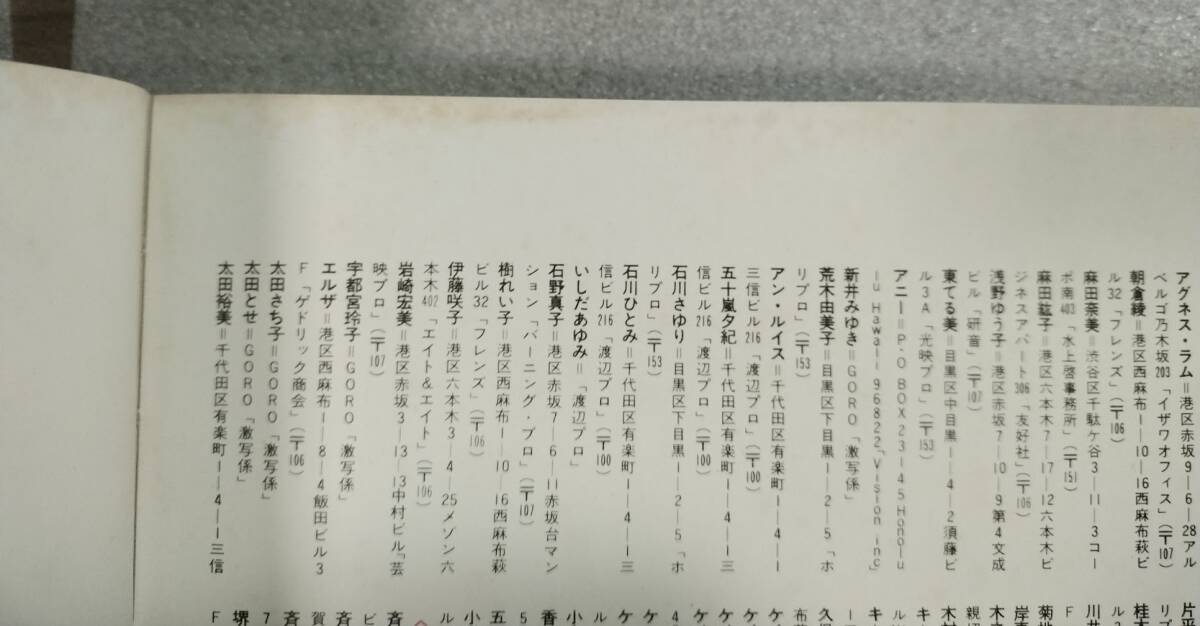 アグネス・ラム＝港区赤坂9―6―28アル
ベルゴ乃木坂203「イザワオフィス」(〒107)
朝倉綾＝港区西麻布1―10―16西麻布萩ビ
ル32「フレンズ」(〒106)
麻田奈美＝渋谷区千駄ケ谷3―11―3コー
ポ南403「水上啓事務所」(〒151)
麻田紘子＝港区六本木7―17―12六本木ビ
ジネスアパート306「友好社」(〒106)
浅野ゆう子＝港区赤坂7―10―9第4文成
ビル「研音」(〒107)
東てる美＝目黒区中目黒1―4―2須藤ビ
ル3A「光映プロ」(〒153)
アニー＝P・O BOX23―45Honolu
lu Hawaii 96822「Vision inc」
新井みゆき＝GORO「激写係」
荒木由美子＝目黒区下目黒1―2―5「ホ
リプロ」(〒153)
アン・ルイス＝千代田区有楽町1―4―1
三信ビル216「渡辺プロ」(〒100)
五十嵐夕紀＝千代田区有楽町1―4―1三
信ビル216「渡辺プロ」(〒100)
石川さゆり＝目黒区下目黒1―2―5「ホ
リプロ」(〒153)
石川ひとみ＝千代田区有楽町1―4―1三
信ビル216「渡辺プロ」(〒100)
いしだあゆみ＝「渡辺プロ」
石野真子＝港区赤坂7―6―11赤坂台マン
ション「バーニング・プロ」(〒107)
樹れい子＝港区西麻布1―10―16西麻布萩
ビル32「フレンズ」(〒106)
伊藤咲子＝港区六本木3―4―25メゾン六
本木402「エイト＆エイト」(〒106)
岩崎宏美＝港区赤坂3―13―13中村ビル「芸
映プロ」(〒107)
宇都宮玲子＝GORO「激写係」
エルザ＝港区西麻布1―8―4飯田ビル3
F「ゲドリック商会」(〒106)
太田さち子＝GORO「激写係」
太田とせ＝GORO「激写係」
太田裕美＝千代田区有楽町1―4―1三信
片平
リプ
桂木
ル3
川井
F
菊地
岸
木
親
木村
キ
キ
ル
久保
布
ケ
ケ
ケ
ケ
4
ケ
ケ
ル
小
香
5
五
小
ル
斉
ビ
斉
賀
斉
7
堺
F